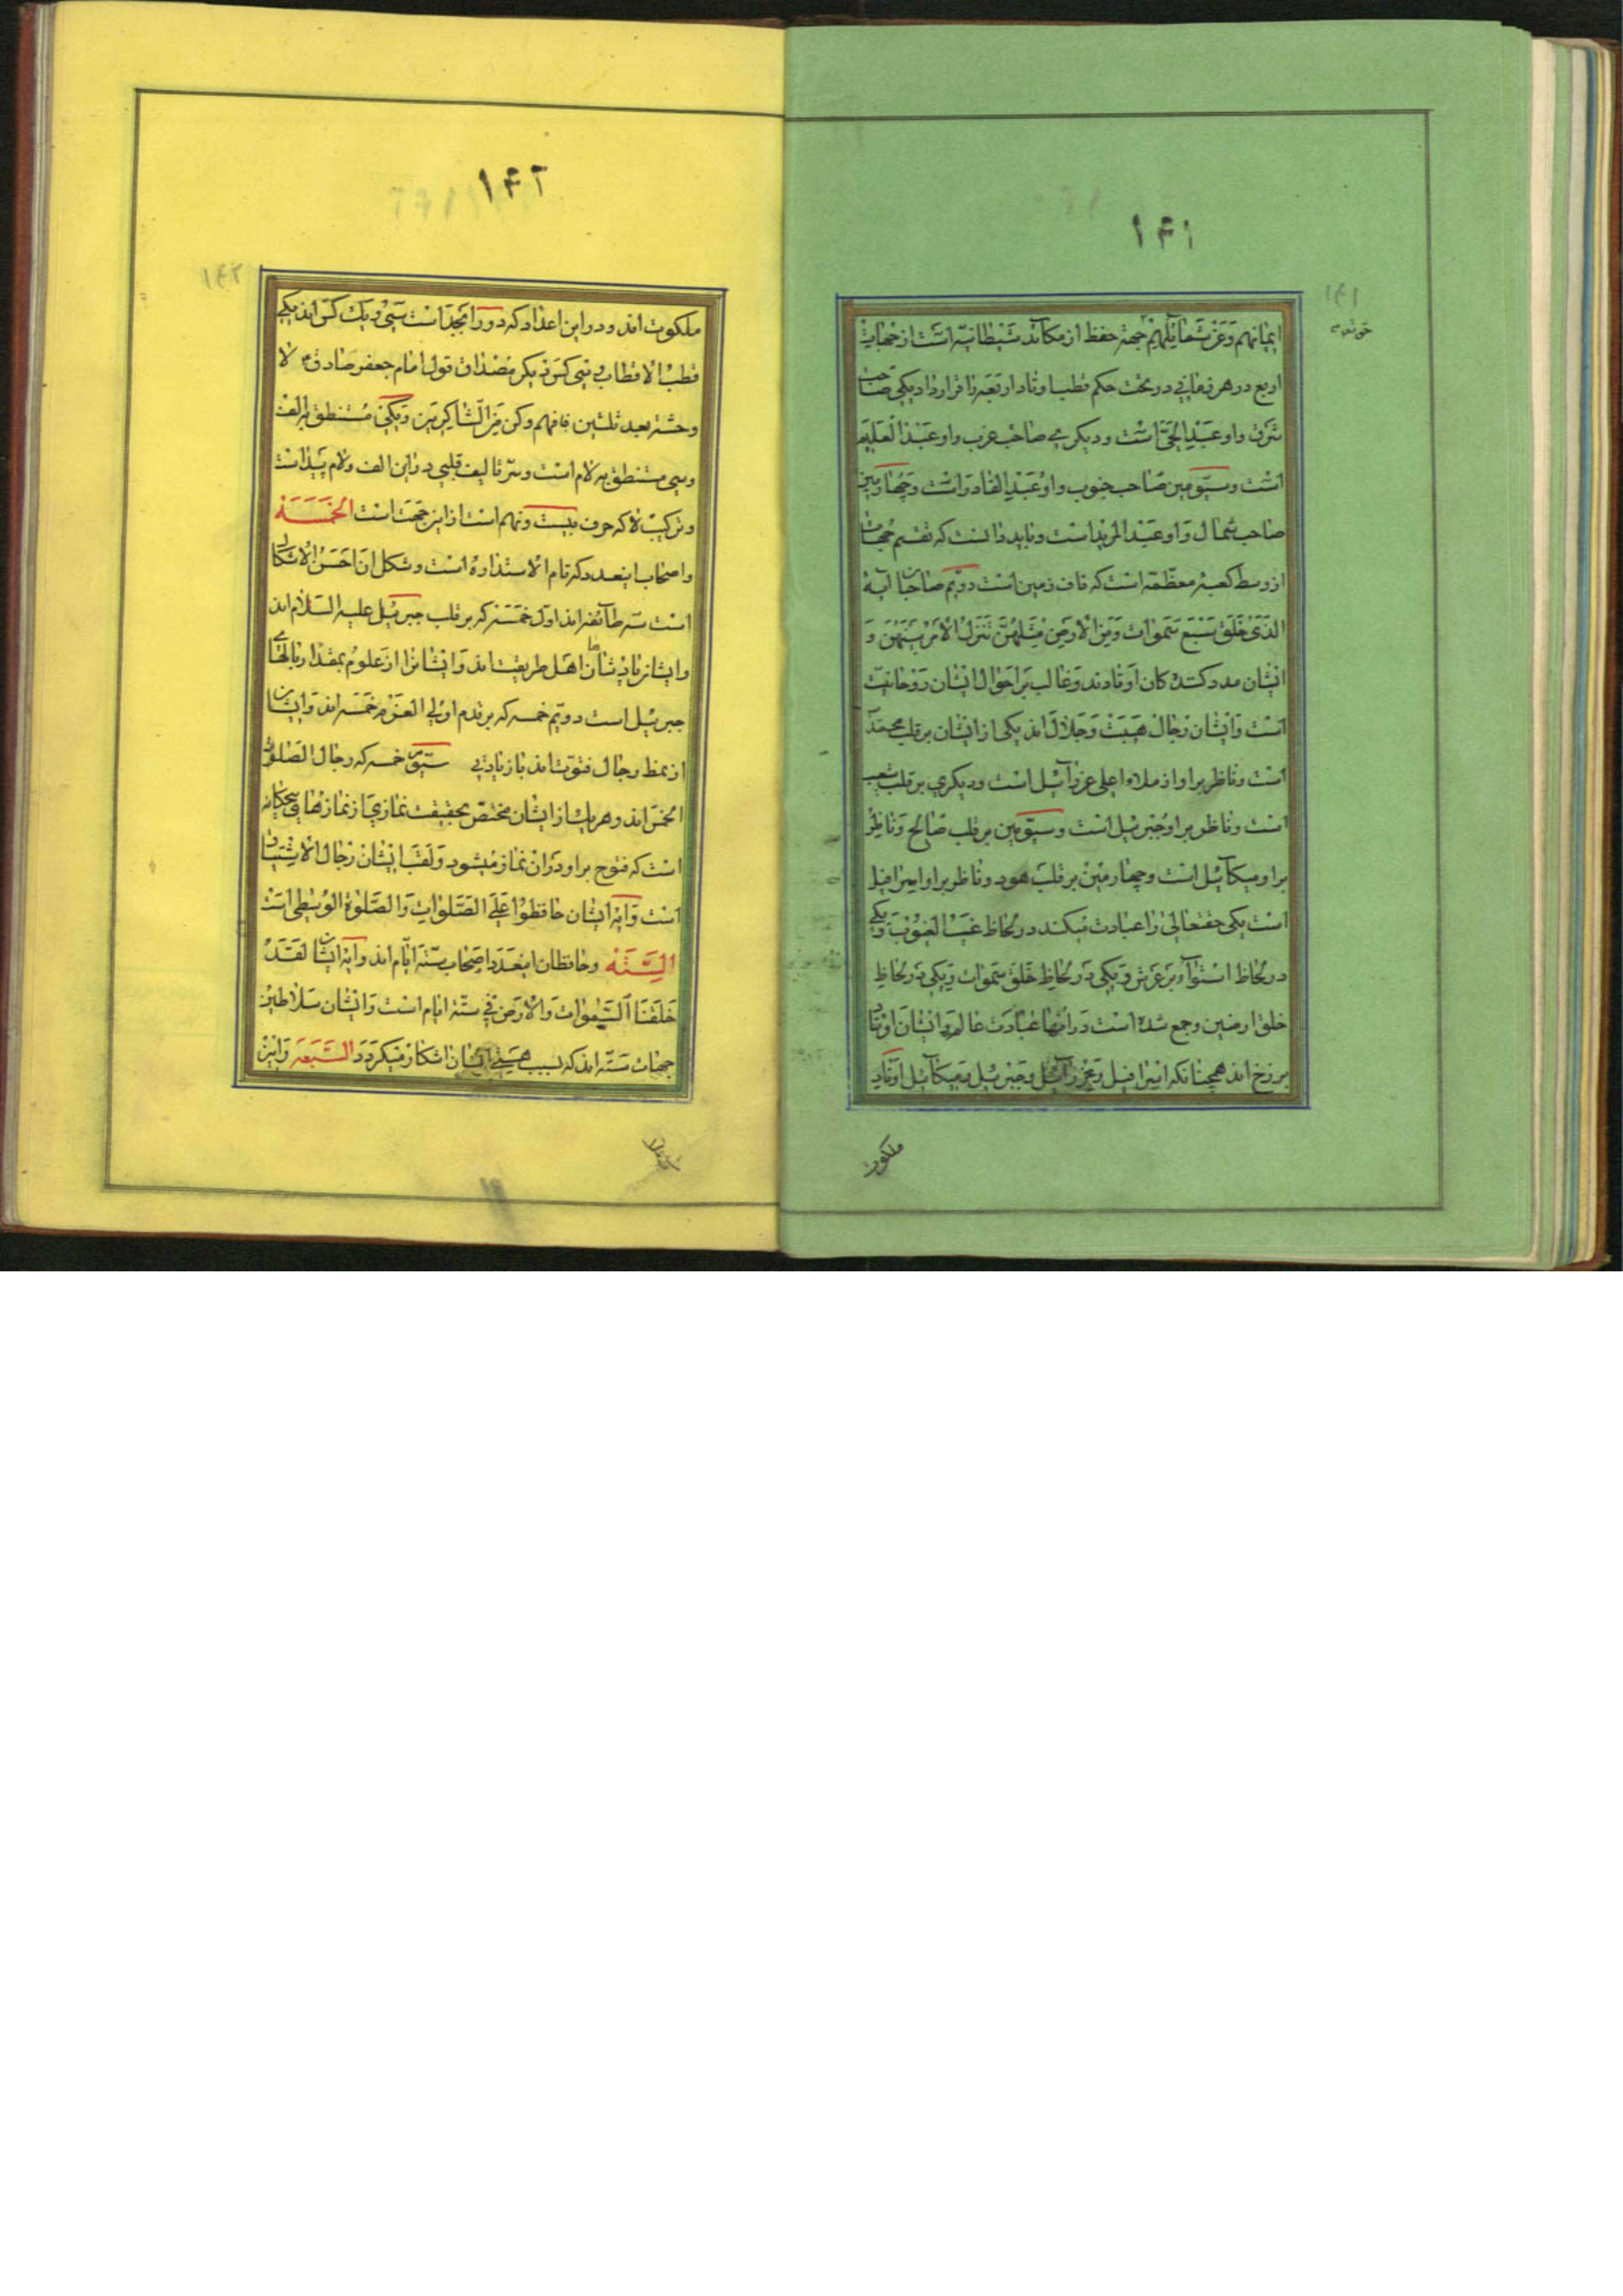 ۱۴۱
۱۴۱
ایمانهم وَعَنْ شَمٰائِلِهِمْ جهة حفظ از مکائد شیطانیه است از جهات
اربع در هر زمانی در تحت حکم قطب اوتاد اربعه را قرار داد یکی صاحب
شرق و او عَبْدِ الحَیّ است و دیگری صاحب غرب و او عَبْدُ الْعَلیم
است و سیّومین صاحب جنوب و او عَبْدِ القادر است و چهارمین
صاحب شمال و او عبد المرید است و باید دانست که تقسیم جهات
از وسط کعبهٔ معظّمه است که ناف زمین است دویّم صاحبان آیهٔ
الَّذی خَلَقَ سَبْعَ سَمَوات وَمِنَ الْاَرضِ مِثْلَهُنَّ تَنَزَّلُ الْاَمْرُ بَیْنَهُنَّ وَ
ایشان مدد کننده کان اوتادند و غالب بر احوال ایشان روحانیّت
است و ایشان رجال هَیْبَتْ وَ جَلال اند یکی از ایشان بر قلب محمّد
است و ناظر بر او از ملاء اعلی عزرآئیل است و دیگری بر قلب شعیب
است و ناظر بر او جبرئیل است و سیّومین بر قلب صالح و ناظر
بر او میکآئیل است و چهارمین بر قلب هود و ناظر بر او اسرافیل
است یکی حقتعالی را عبادت میکند در لحاظ غَیْبُ الغُیُوبْ و یکی
در لحاظ استوآء بر عرش و یکی در لحاظ خلق سَموات و یکی در لحاظ
خلق ارضین و جمع شده است در آنها عبادت عالم و ایشان اوتاد
برزخ اند همچنانکه اسرافیل و عزرآئیل و جبرئیل و میکآئیل اوتاد
ملکوت
۱۴۲
۱۴۲
ملکوت اند و در این اعداد که در ورا ابجد است سی و یک کس اند یکی
قطب الاقطاب و سی کس دیگر مصداق قول امام جعفر صادق ع لا
وحشة بعد ثلثین فافهم وکن مِنَ الشّاکِرینَ و یکی مستنطق به الف
و سی مستنطق به لام است و سرّ تالیف قلبی در این الف و لام پیداست
و ترکیب لا که حرف بیست و نهم است از این جهت است الخَمْسَه
و اصحاب اینعدد که تام الاستداره است و شکل آن اَحْسَنُ الْاَشکال
است سه طآئفه اند اول خمسه که بر قلب جبرئیل علیه السلام اند
و ایشان پادشاهان اهل طریقت اند و ایشانرا از علوم بمقدار بالهای
جبرئیل است دویّم خمسه که بر قدم اولی العزم خمسه اند و ایشان
از نمط رجال فتوت اند بازیادتی سیّوّم خمسه که رجال الصّلوات
الخمس اند و هر یک از ایشان مختصّ بحقیقت نمازی از نمازهای پنجگانه
است که فتوح بر او در آن نماز میشود و لقب ایشان رجال الاشتیاق
است وَ آیَه ایشان حافظوا عَلَی الصَّلَواتِ وَالصَّلوٰةِ الوُسْطی است
السِّتَّه و حافظان اینعدد اصحاب ستّه ایّام اند و آیه ایشان لَقَدْ
خَلَقْنَا السَّمٰواتِ وَالْاَرضَ فی سِتَّةِ ایّام است و ایشان سلاطین
جهات ستّه اند که بسبب هستی ایشان آشکار میگردد السَّبْعَه و این